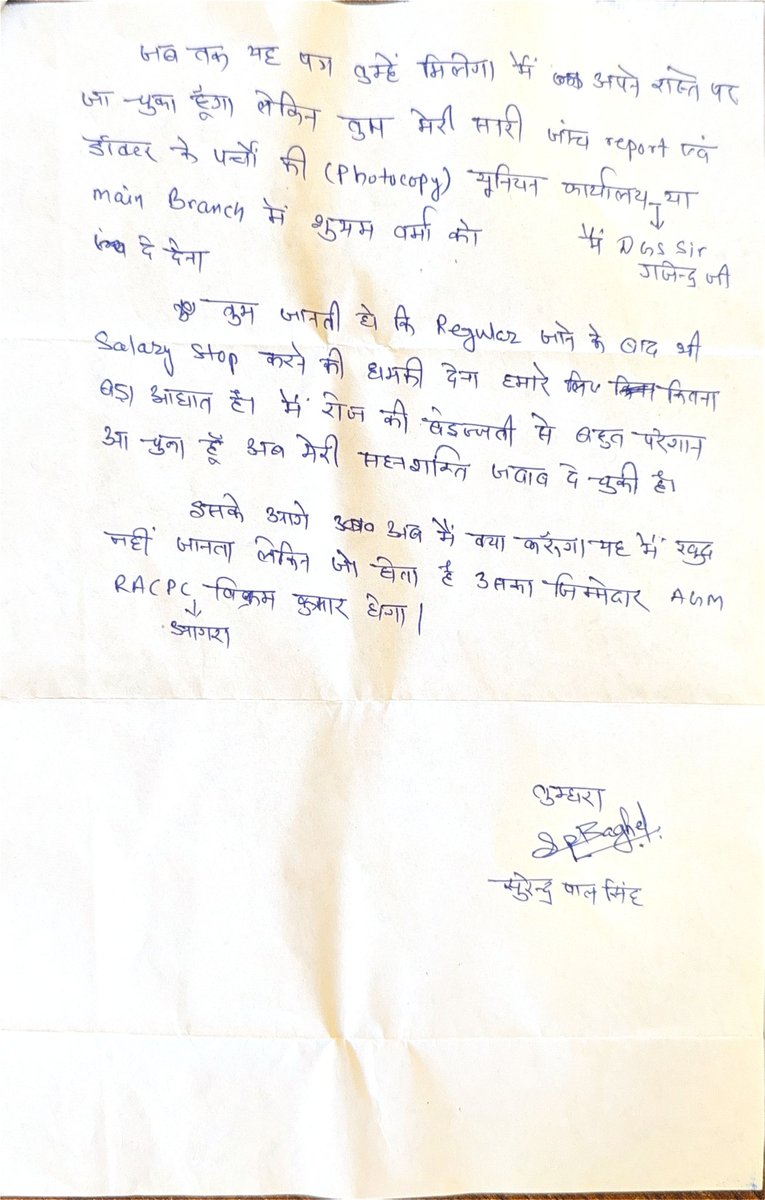 जब तक यह पत्र तुम्हें मिलेगा मैं अपने रास्ते पर
जा चुका हूँगा लेकिन तुम मेरी सारी जांच report एवं
डॉक्टर के पर्चों की (Photocopy) यूनियन कार्यालय या
main Branch में शुभम वर्मा को
↓
में DGS Sir
गजेन्द्र जी
दे देना
तुम जानती हो कि Regular जाने के बाद भी
Salary stop करने की धमकी देना हमारे लिए कितना
बड़ा आघात है। मैं रोज की बेइज्जती से बहुत परेशान
आ चुका हूँ अब मेरी सहनशक्ति जवाब दे चुकी है।
इसके आगे अब मैं क्या करूंगा यह मैं खुद
नहीं जानता लेकिन जो होता है उसका जिम्मेदार AGM
RACPC विक्रम कुमार होगा।
↓
आगरा
तुम्हारा
S.P. Baghel
सुरेन्द्र पाल सिंह